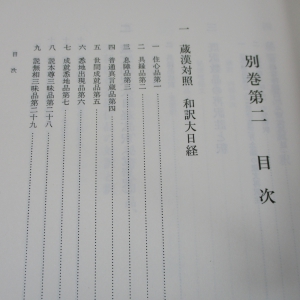 別巻第二　目次
一　蔵漢対照　和訳大日経
一　住心品第一
二　具縁品第二
三　息障品第三
四　普通真言蔵品第四
五　世間成就品第五
六　悉地出現品第六
七　成就悉地品第七
八　説本尊三昧品第二十八
九　説無相三昧品第二十九
目次